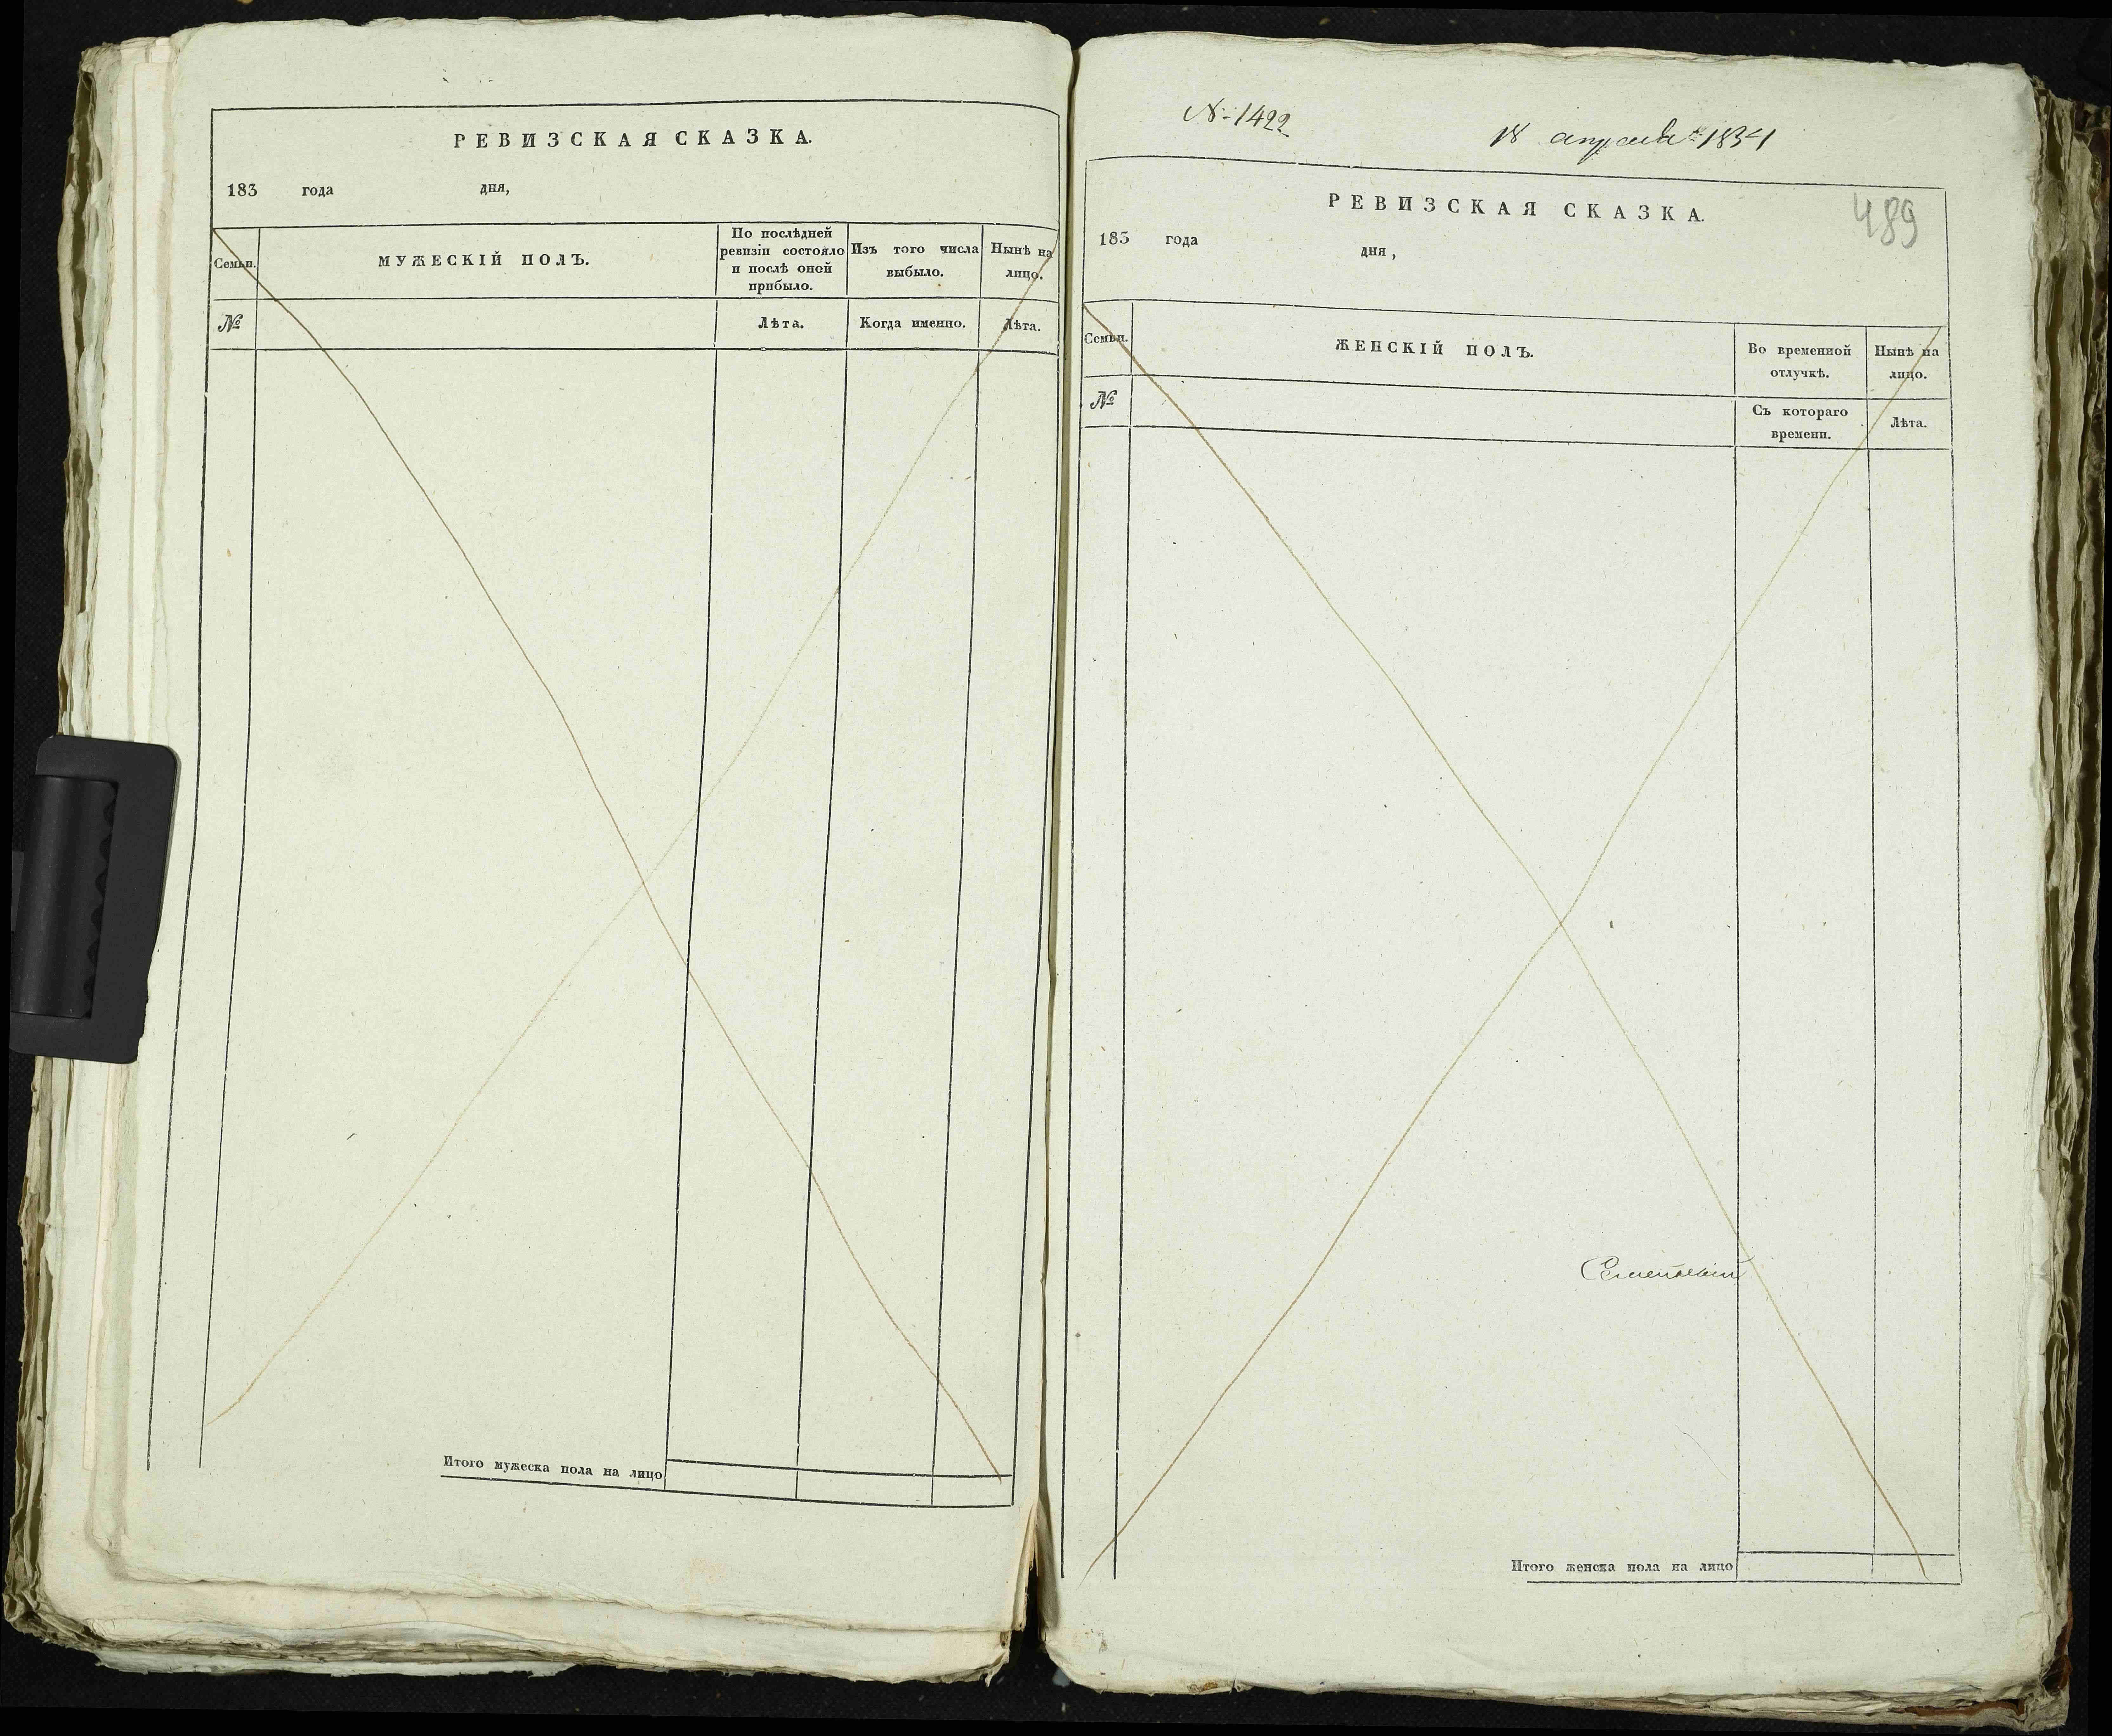 РЕВИЗСКАЯ СКАЗКА.
183 года дня,
Семьи.
МУЖЕСКІЙ ПОЛЪ.
По послѣдней
ревизіи состояло
и послѣ оной
прибыло.
Изъ того числа
выбыло.
Нынѣ на
лицо.
№
Лѣта.
Когда именно.
Лѣта.
Итого мужеска пола на лицо
№ 1422
18 апреля 1834
489
РЕВИЗСКАЯ СКАЗКА.
183 года дня,
Семьи.
ЖЕНСКІЙ ПОЛЪ.
Во временной
отлучкѣ.
Нынѣ на
лицо.
№
Съ котораго
времени.
Лѣта.
Итого женска пола на лицо